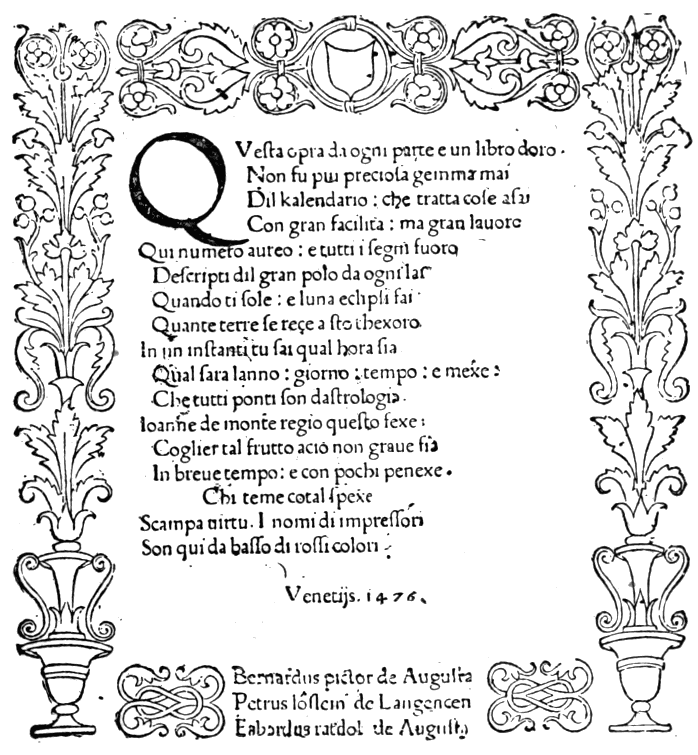 QVesta opra da ogni parte e un libro doro.
Non fu piu preciosa gemma mai
Dil kalendario : che tratta cose asai
Con gran facilita : ma gran lauore
Qui numero aureo : e tutti i segni fuoro
Descripti dil gran polo da ogni lai
Quando ti sole : e luna eclipsi fai
Quante terre se rege a sto thexoro
In un instanti tu sai qual hora sia
Qual sara lanno : giorno : tempo : e mexe :
Che tutti ponti son dastrologia.
Ioanne de monte regio questo fexe :
Coglier tal frutto acio non graue sia
In breue tempo : e con pochi penexe.
Chi teme cotal spexe
Scampa uirtu. I nomi di impressori
Son qui da basso di rossi colori
Venetijs. 1476.
Bernardus pictor de Augusta
Petrus lôslein de Langencen
Erhardus ratdol de Augusta